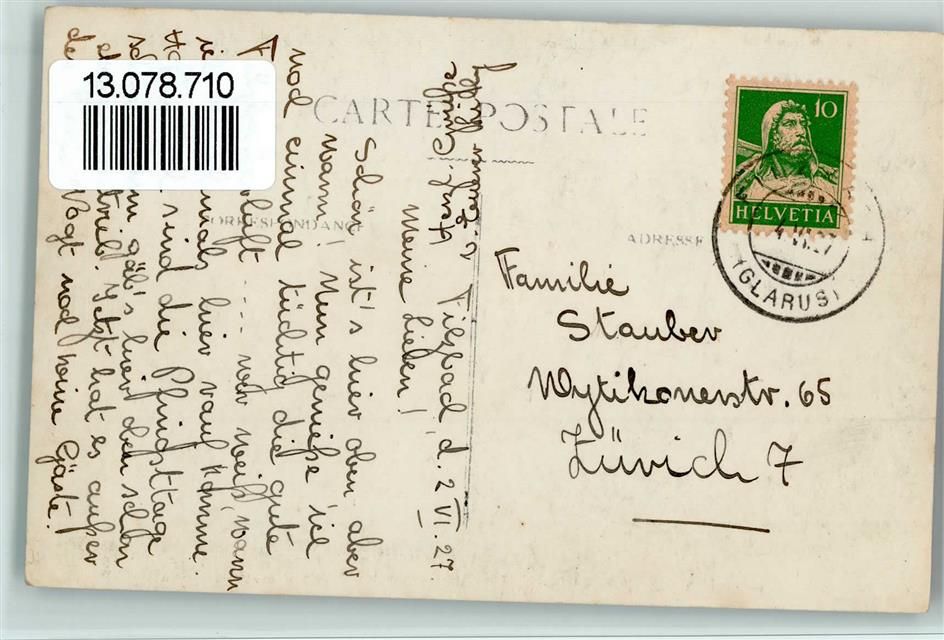 13.078.710
CARTE POSTALE
CORRESPONDANCE
ADRESSE
10
HELVETIA
(GLARUS)
Filzbad, d. 2. VI. 27.
Meine Lieben!
Schön ist's hier oben, aber
warm! Nun genieße ich
noch einmal tüchtig die gute
wer weiß, wann
mals hier rauf komme.
sind die Pfingsttage
gäb's hier oben schon
trieb. Jetzt hat es außer
Vogt noch keine Gäste.
Herzl. Grüße
Familie
Stauber
Wytikonerstr. 65
Zürich 7